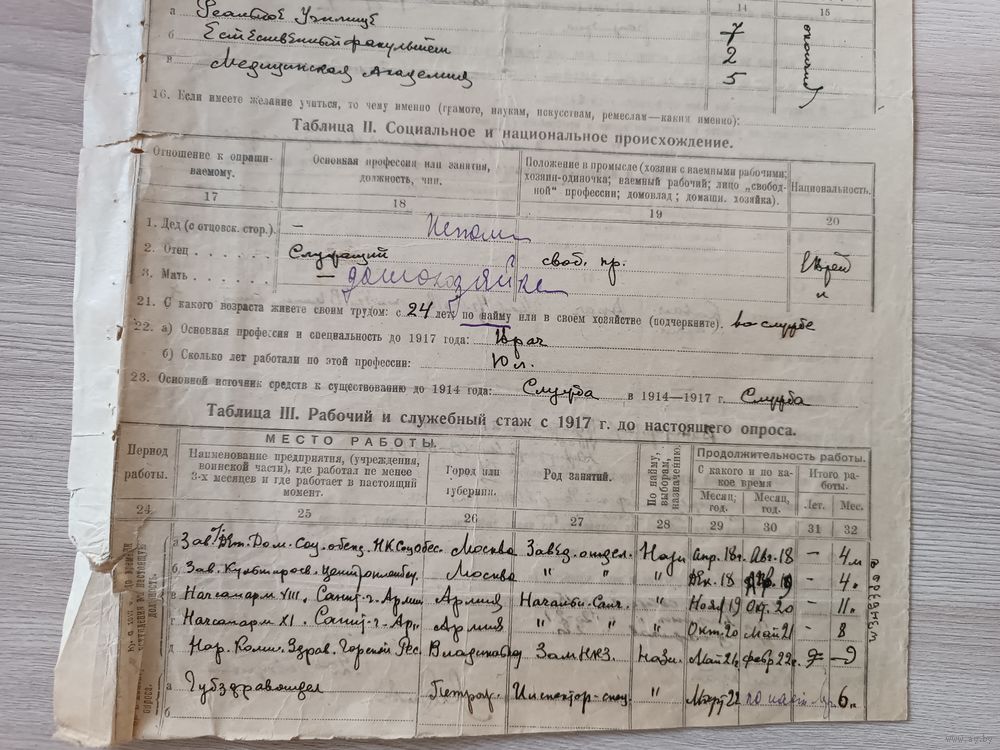 14 15
а Реальное Училище 7 окончил
б Естественный факультет 2
в Медицинская Академия 5
16. Если имеете желание учиться, то чему именно (грамоте, наукам, искусствам, ремеслам—каким именно):
Таблица II. Социальное и национальное происхождение.
Отношение к опрашиваемому. Основная профессия или занятия, должность, чин. Положение в промысле (хозяин с наемными рабочими; хозяин-одиночка; наемный рабочий; лицо „свободной“ профессии; домовлад; домашн. хозяйка). Национальность.
17 18 19 20
1. Дед (с отцовск. стор.). —
2. Отец Служащий своб. пр. Еврей
3. Мать — домохозяйка "
21. С какого возраста живете своим трудом: с 24 лет, по найму или в своем хозяйстве (подчеркните). по службе
22. а) Основная профессия и специальность до 1917 года: Врач
б) Сколько лет работали по этой профессии: 10 л.
23. Основной источник средств к существованию до 1914 года: Служба в 1914—1917 г. Служба
Таблица III. Рабочий и служебный стаж с 1917 г. до настоящего опроса.
Период работы. МЕСТО РАБОТЫ. Род занятий. По найму, выборам, назначению. Продолжительность работы.
Наименование предприятия, (учреждения, воинской части), где работал не менее 3-х месяцев и где работает в настоящий момент. Город или губерния. С какого и по какое время Итого работы.
Месяц, год. Месяц, год. Лет. Мес.
24 25 26 27 28 29 30 31 32
а Зав. Дет. Дом. Соц. обесп. НКСоцобес. Москва Завед. отдел. Назн Апр. 18г. Авг. 18 — 4 м в среднем
б Зав. Культпросв. Москва " " " Дек. 18 — 4 "
в Начсанарм VIII. Санит. Армия " Нояб 19 Окт. 20 — 11 "
г Начсанарм XI. Армия " " " Окт. 20 Май 21 — 8
д Нар. Комис. Здрав. Горской Рес. Зам НКЗ. Назн. Май 21г. февр 22г. — 9
а Губздравотдел Петрогр. Инспектор " Март 22 по наст. 6 "
б
www.ay.by